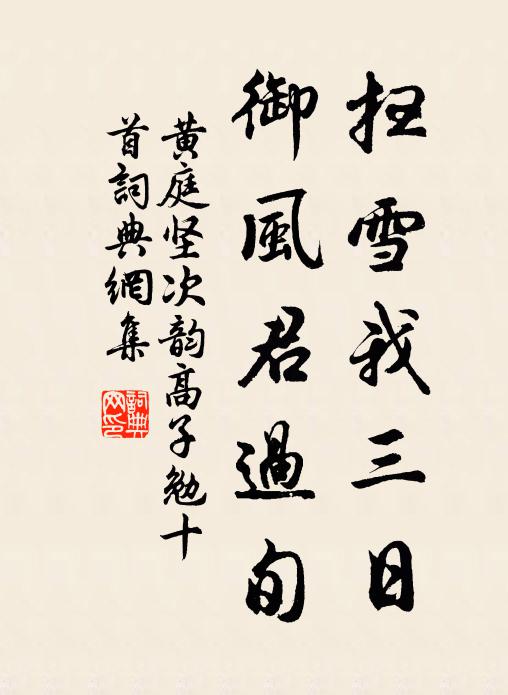 抂雪我三日
御風君過旬
黄庭坚次韵高子勉十
首詞典網集
詞典網印